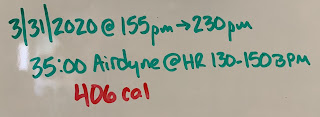 3/31/2020 @ 155pm → 230pm
35:00 Airdyne @ HR 130-150BPM
406 cal